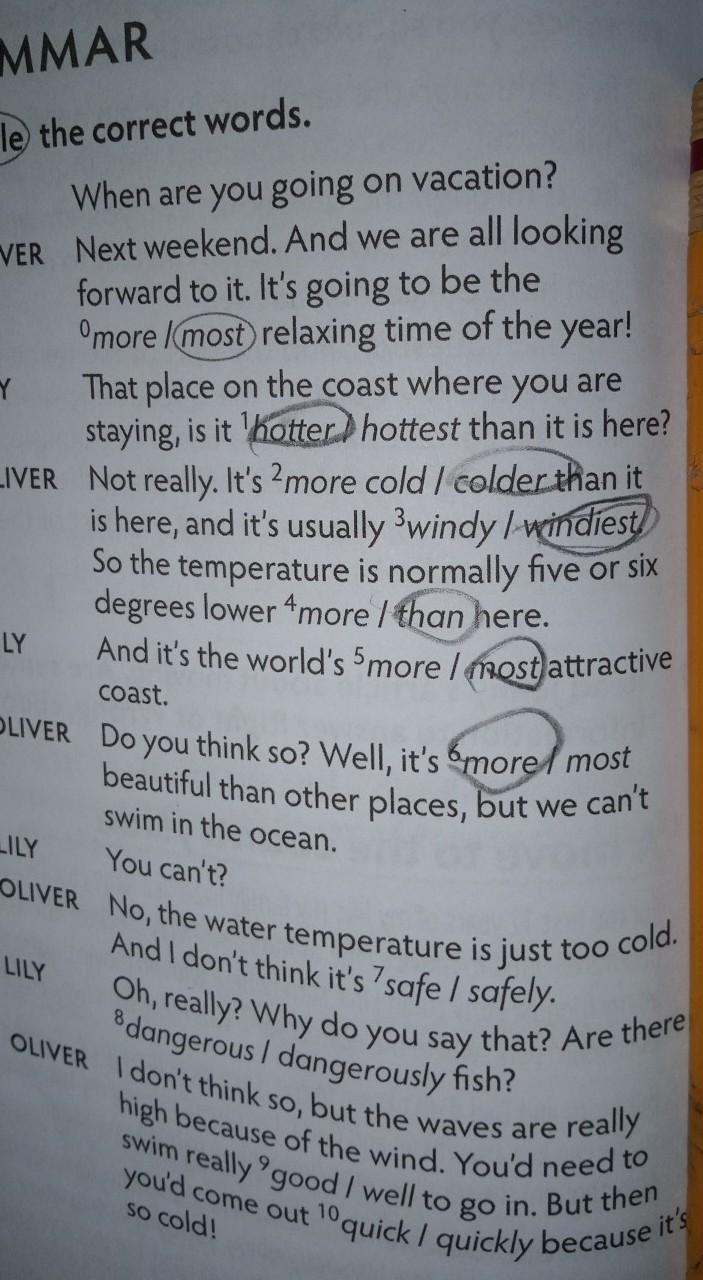 MMAR
le the correct words.
When are you going on vacation?
VER Next weekend. And we are all looking
forward to it. It's going to be the
⁰more / most relaxing time of the year!
Y That place on the coast where you are
staying, is it ¹hotter / hottest than it is here?
LIVER Not really. It's ²more cold / colder than it
is here, and it's usually ³windy / windiest.
So the temperature is normally five or six
degrees lower ⁴more / than here.
LY And it's the world's ⁵more / most attractive
coast.
OLIVER Do you think so? Well, it's ⁶more / most
beautiful than other places, but we can't
swim in the ocean.
LILY You can't?
OLIVER No, the water temperature is just too cold.
And I don't think it's ⁷safe / safely.
LILY Oh, really? Why do you say that? Are there
⁸dangerous / dangerously fish?
OLIVER I don't think so, but the waves are really
high because of the wind. You'd need to
swim really ⁹good / well to go in. But then
you'd come out ¹⁰quick / quickly because it's
so cold!